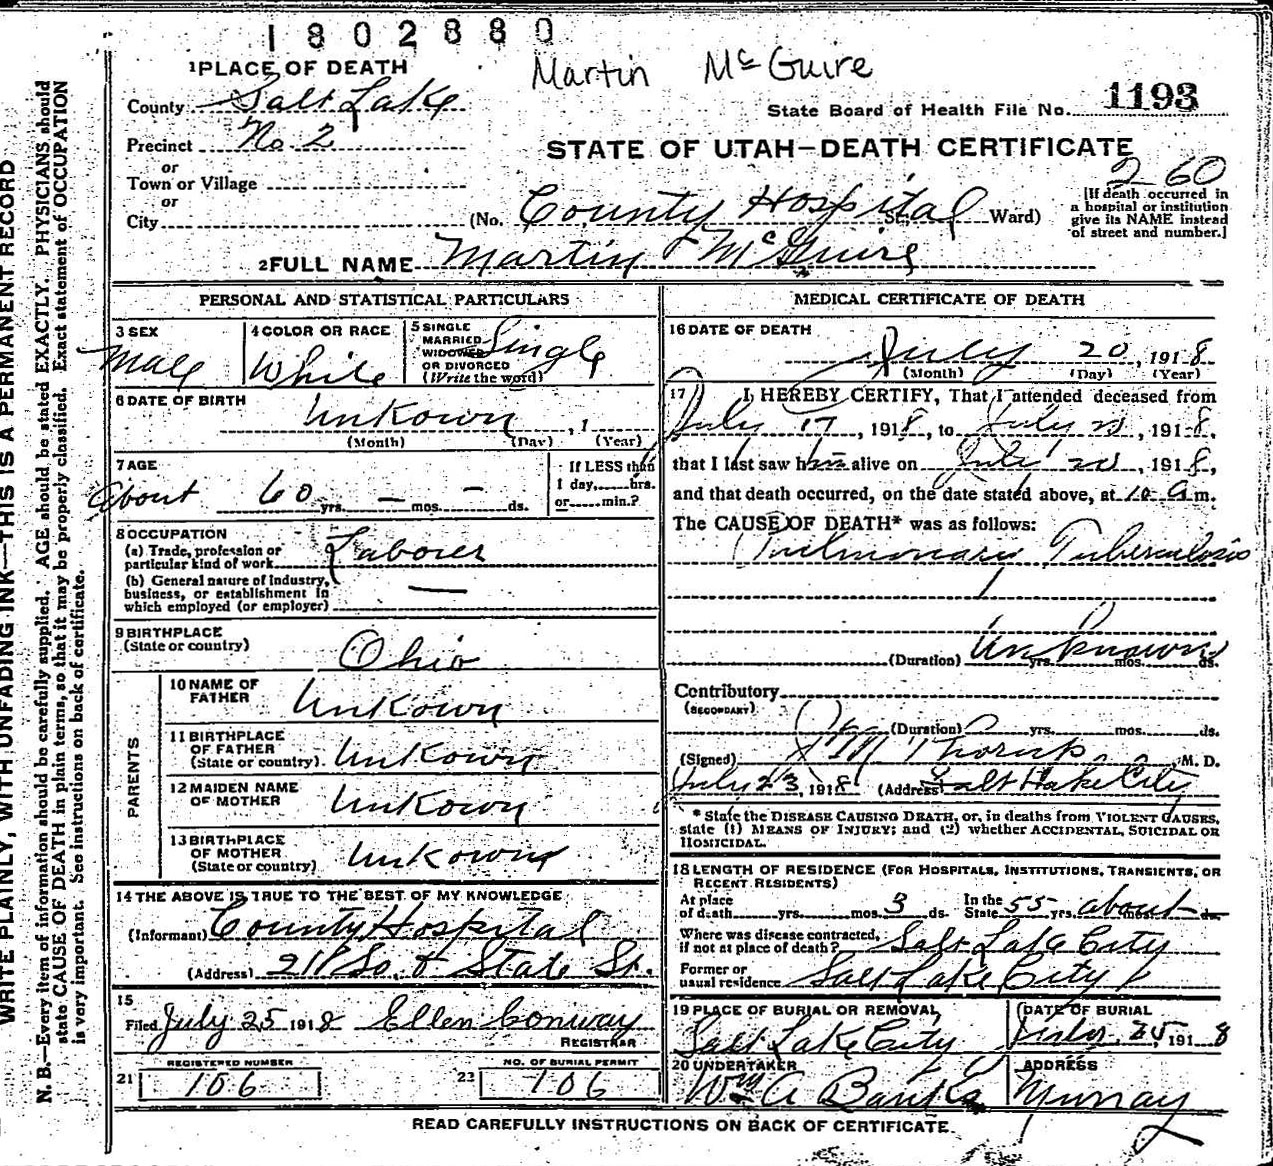 1802880
Martin McGuire
1 PLACE OF DEATH
County Salt Lake
State Board of Health File No. 1193
Precinct No. 2
STATE OF UTAH—DEATH CERTIFICATE
or
Town or Village
or
City
260
(No. County Hospital St. Ward)
[If death occurred in
a hospital or institution
give its NAME instead
of street and number.]
2 FULL NAME Martin McGuire
PERSONAL AND STATISTICAL PARTICULARS
3 SEX
Male
4 COLOR OR RACE
White
5 SINGLE
MARRIED
WIDOWED
OR DIVORCED
(Write the word)
Single
6 DATE OF BIRTH
Unkown , 1
(Month) (Day) (Year)
7 AGE
About 60 yrs. — mos. — ds.
If LESS than
1 day, hrs.
or min.?
8 OCCUPATION
(a) Trade, profession or
particular kind of work Laborer
(b) General nature of industry,
business, or establishment in
which employed (or employer) —
9 BIRTHPLACE
(State or country) Ohio
PARENTS
10 NAME OF
FATHER Unkown
11 BIRTHPLACE
OF FATHER
(State or country) Unkown
12 MAIDEN NAME
OF MOTHER Unkown
13 BIRTHPLACE
OF MOTHER
(State or country) Unkown
14 THE ABOVE IS TRUE TO THE BEST OF MY KNOWLEDGE
(Informant) County Hospital
(Address) 21st So. & State St.
15
Filed July 25 1918 Ellen Conway
REGISTRAR
REGISTERED NUMBER
21 106
NO. OF BURIAL PERMIT
22 106
MEDICAL CERTIFICATE OF DEATH
16 DATE OF DEATH
July 20, 1918
(Month) (Day) (Year)
17 I HEREBY CERTIFY, That I attended deceased from
July 17, 1918, to July 20, 1918,
that I last saw him alive on July 20, 1918,
and that death occurred, on the date stated above, at 10 a m.
The CAUSE OF DEATH* was as follows:
Pulmonary Tuberculosis
(Duration) Unknown yrs. mos. ds.
Contributory
(SECONDARY)
(Duration) yrs. mos. ds.
(Signed) M. Thorup, M. D.
July 23, 1918 (Address) Salt Lake City
* State the DISEASE CAUSING DEATH, or, in deaths from VIOLENT CAUSES,
state (1) MEANS OF INJURY; and (2) whether ACCIDENTAL, SUICIDAL OR
HOMICIDAL.
18 LENGTH OF RESIDENCE (FOR HOSPITALS, INSTITUTIONS, TRANSIENTS, OR
RECENT RESIDENTS)
At place
of death yrs. mos. 3 ds. In the
State 55 yrs. about mos. ds.
Where was disease contracted,
if not at place of death? Salt Lake City
Former or
usual residence Salt Lake City
19 PLACE OF BURIAL OR REMOVAL
Salt Lake City
DATE OF BURIAL
25, 1918
20 UNDERTAKER
Wm A Banks
ADDRESS
Murray
READ CAREFULLY INSTRUCTIONS ON BACK OF CERTIFICATE.
WRITE PLAINLY, WITH UNFADING INK—THIS IS A PERMANENT RECORD
N. B.—Every item of information should be carefully supplied. AGE should be stated EXACTLY. PHYSICIANS should
state CAUSE OF DEATH in plain terms, so that it may be properly classified. Exact statement of OCCUPATION
is very important. See instructions on back of certificate.